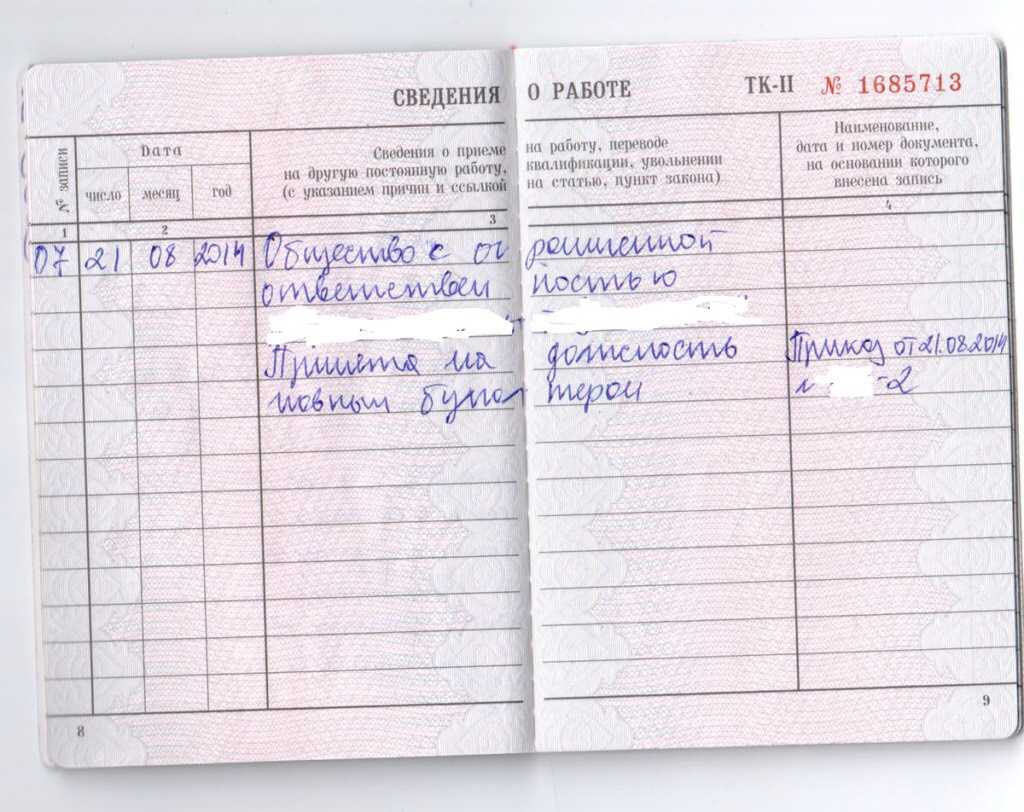 СВЕДЕНИЯ О РАБОТЕ ТК-II № 1685713
№ записи
Дата
число месяц год
Сведения о приеме на работу, переводе
на другую постоянную работу, квалификации, увольнении
(с указанием причин и ссылкой на статью, пункт закона)
Наименование,
дата и номер документа,
на основании которого
внесена запись
1 2 3 4
07 21 08 2014 Общество с ог раниченной
ответствен ностью
Принята на должность Приказ от 21.08.2014
бухгал тером -2
8
9